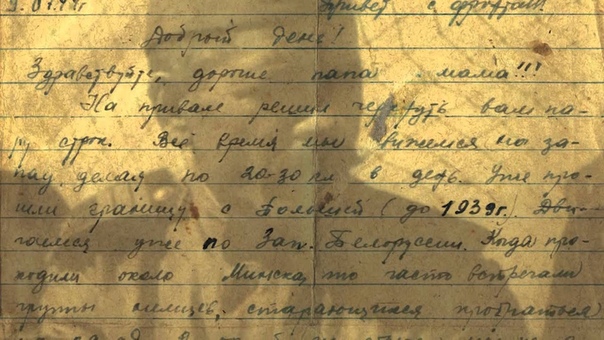 9.07.44г Привет с фронта!!!
Добрый день!
Здравствуйте, дорогие папа и мама!!!
На привале решил черкнуть вам па-
ру строк. Всё время мы движемся на за-
пад, делая по 20-30 км в день. Уже про-
шли границу с Польшей (до 1939г.) Дви-
гаемся уже по Зап. Белоруссии. Когда про-
ходили около Минска, то часто встречали
группы немцев, старающихся пробраться